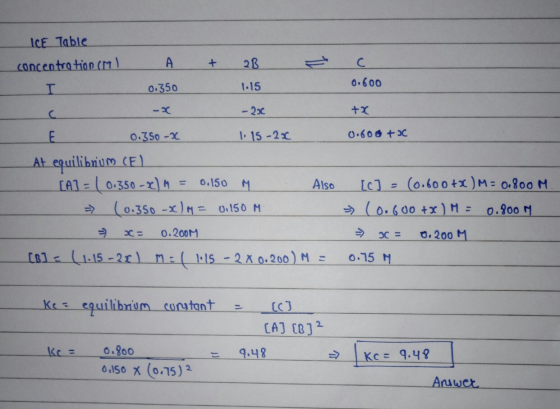 ICE Table
concentration(M) A + 2B ⇌ C
I 0.350 1.15 0.600
C -x -2x +x
E 0.350-x 1.15-2x 0.600+x
At equilibrium (E)
[A] = (0.350-x) M = 0.150 M Also [C] = (0.600+x) M = 0.800 M
⇒ (0.350-x) M = 0.150 M ⇒ (0.600+x) M = 0.800 M
⇒ x = 0.200M ⇒ x = 0.200 M
[B] = (1.15-2x) M = (1.15-2×0.200) M = 0.75 M
Kc = equilibrium constant = [C]
[A] [B]²
Kc = 0.800 = 9.48 ⇒ Kc = 9.48
0.150 × (0.75)²
Answer